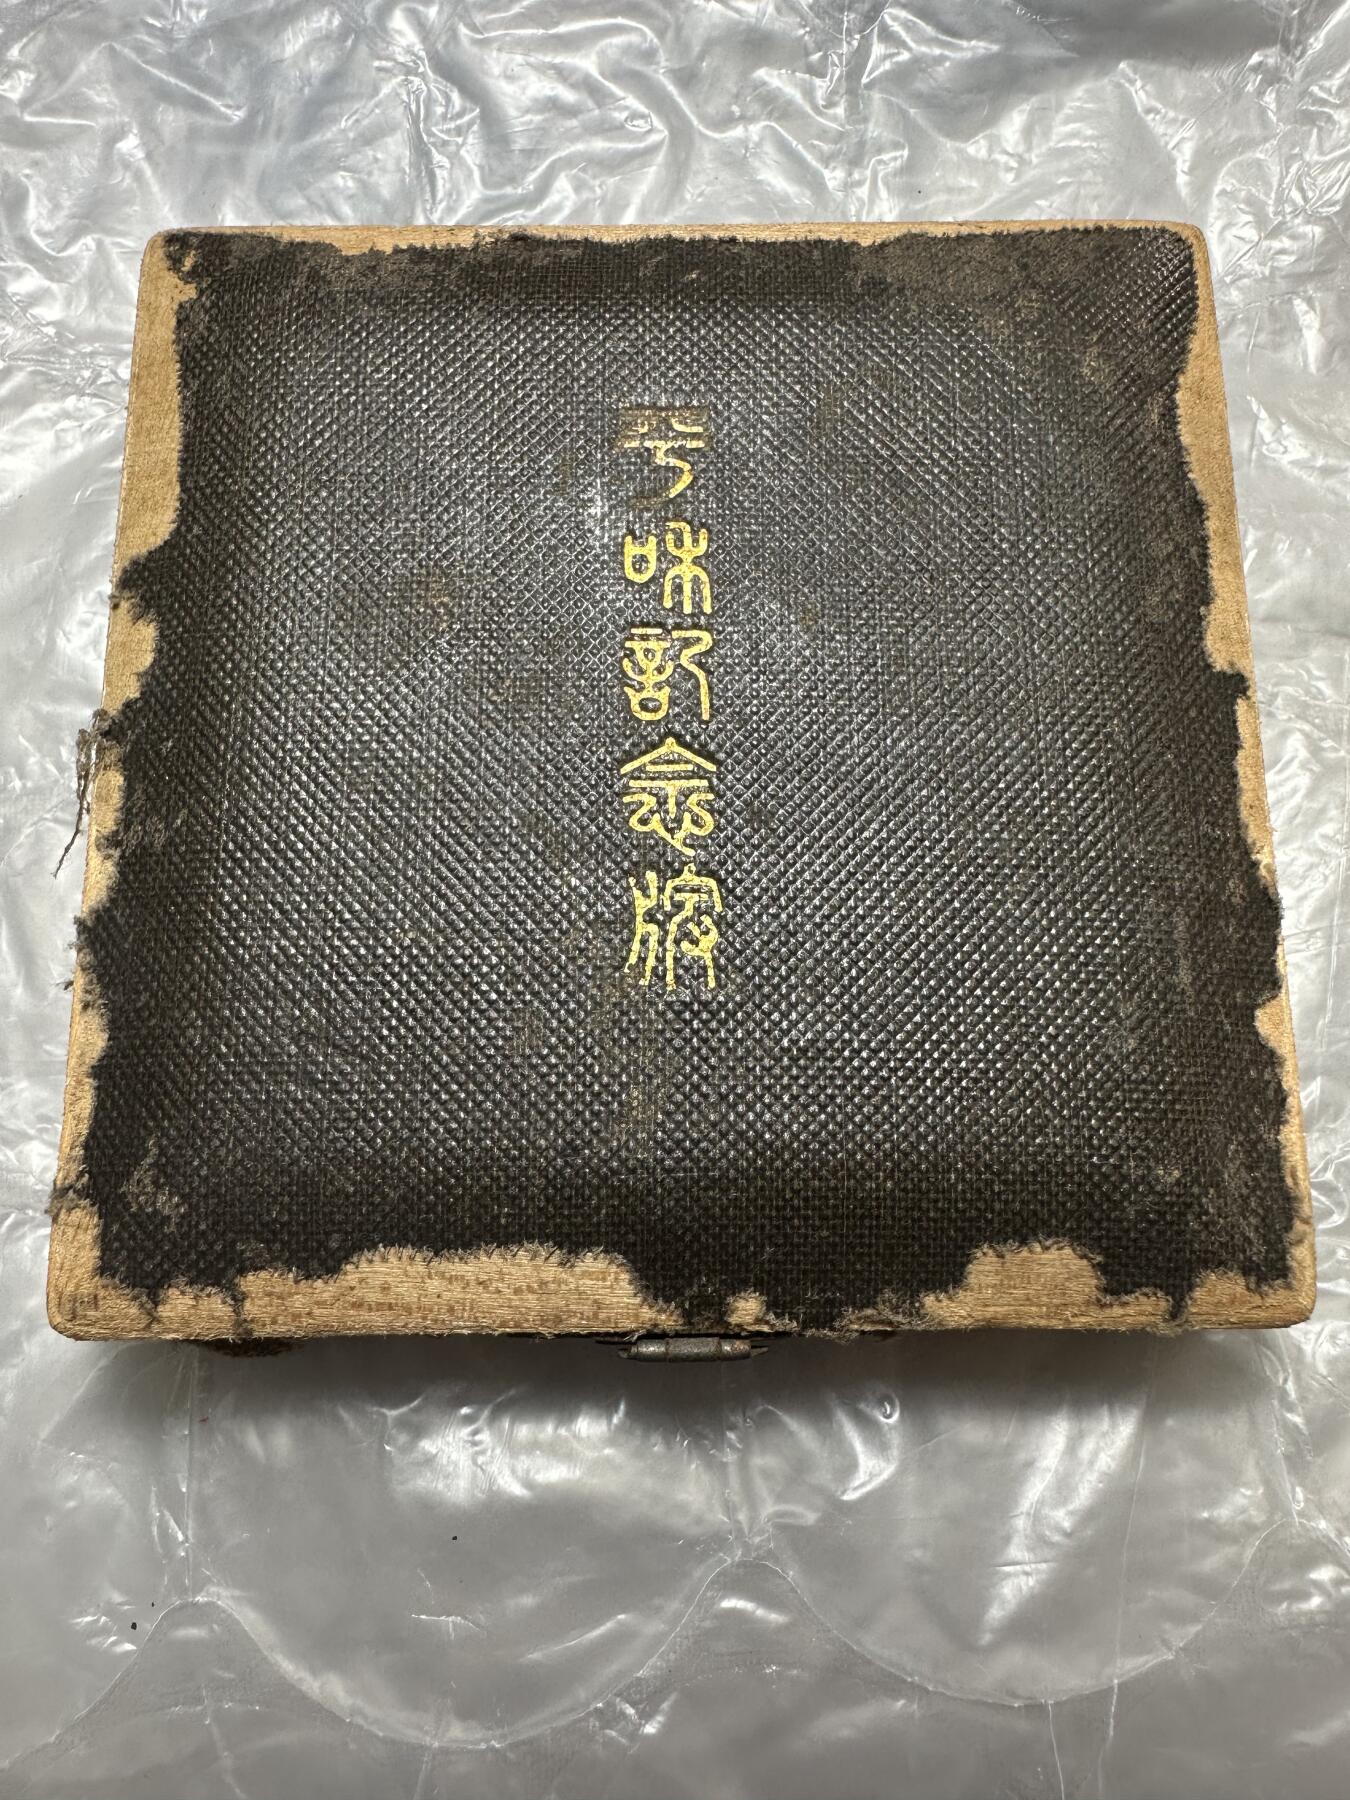 平和記念牌